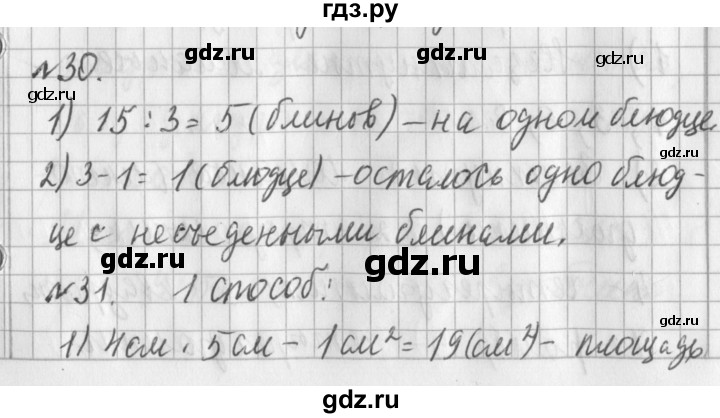 гдз.ру
№30.
gdz.ru gdz.ru
gdz.ru gdz.ru
1) 15 : 3 = 5 (блинов) – на одном блюдце
2) 3 - 1 = 1 (блюдце) – осталось одно блюд-
gdz.ru gdz.ru
це с несъеденными блинами.
gdz.ru gdz.ru
№31. 1 способ:
1) 4см · 5см – 1см² = 19 (см²) – площадь
gdz.ru gdz.ru